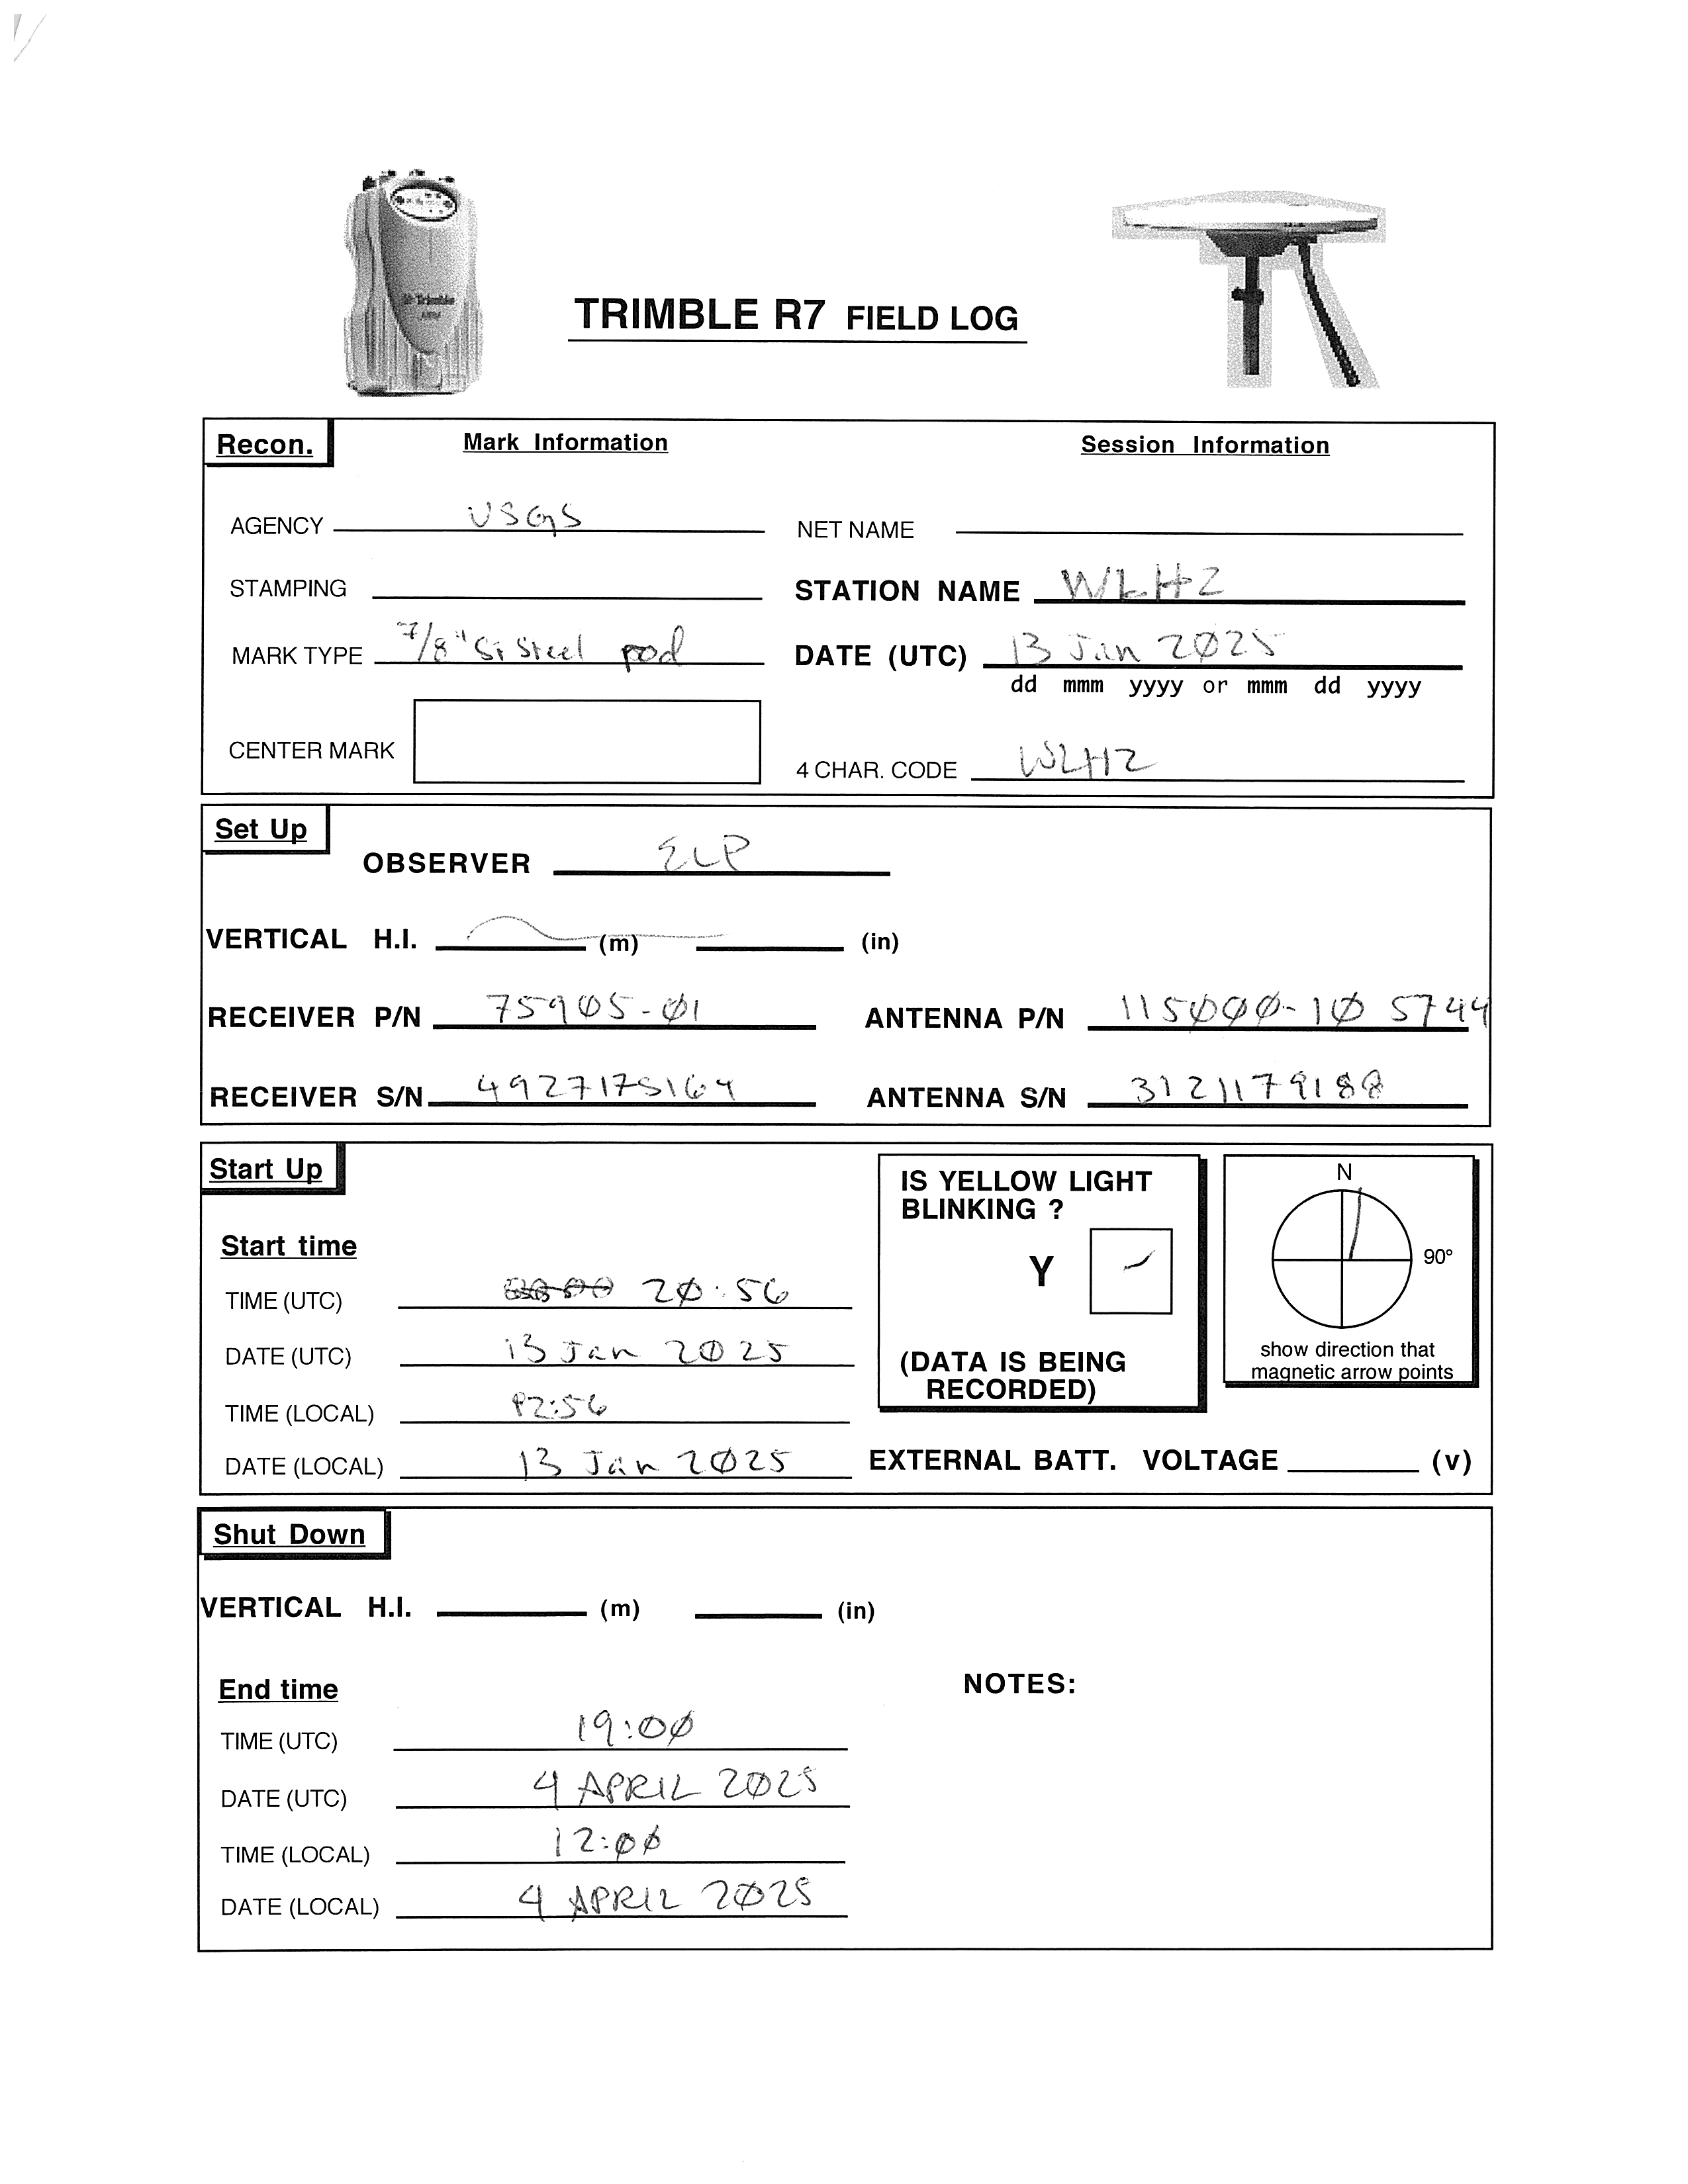 Trimble
TRIMBLE R7 FIELD LOG
Recon.
Mark Information
Session Information
AGENCY USGS
NET NAME
STAMPING
STATION NAME WLHZ
MARK TYPE 7/8" St Steel rod
DATE (UTC) 13 Jan 2025
dd mmm yyyy or mmm dd yyyy
CENTER MARK
4 CHAR. CODE WLHZ
Set Up
OBSERVER ELP
VERTICAL H.I. (m) (in)
RECEIVER P/N 75905-01
ANTENNA P/N 115000-10 5744
RECEIVER S/N 4927175164
ANTENNA S/N 3121179188
Start Up
IS YELLOW LIGHT
BLINKING ?
Y
(DATA IS BEING
RECORDED)
N
90°
show direction that
magnetic arrow points
Start time
TIME (UTC) 20:56
DATE (UTC) 13 Jan 2025
TIME (LOCAL) 12:56
DATE (LOCAL) 13 Jan 2025
EXTERNAL BATT. VOLTAGE (v)
Shut Down
VERTICAL H.I. (m) (in)
End time
NOTES:
TIME (UTC) 19:00
DATE (UTC) 4 APRIL 2025
TIME (LOCAL) 12:00
DATE (LOCAL) 4 APRIL 2025